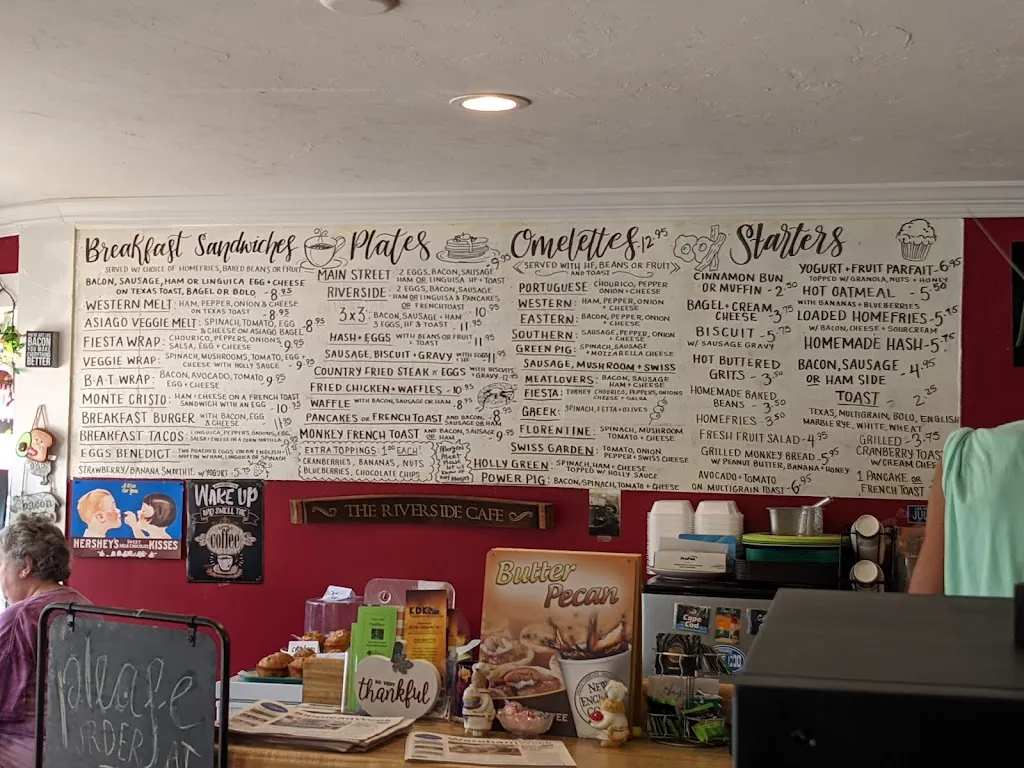 Breakfast Sandwiches
SERVED W/ CHOICE OF HOMEFRIES, BAKED BEANS OR FRUIT
BACON, SAUSAGE, HAM OR LINGUICA EGG + CHEESE
ON TEXAS TOAST, BAGEL OR BOLO - 8.95
WESTERN MELT: HAM, PEPPER, ONION & CHEESE
ON TEXAS TOAST - 8.95
ASIAGO VEGGIE MELT: SPINACH, TOMATO, EGG
& CHEESE ON ASIAGO BAGEL 8.95
FIESTA WRAP: CHOURICO, PEPPERS, ONIONS
SALSA, EGG + CHEESE - 9.95
VEGGIE WRAP: SPINACH, MUSHROOMS, TOMATO, EGG +
CHEESE WITH HOLLY SAUCE - 9.95
B·A·T WRAP: BACON, AVOCADO, TOMATO
EGG + CHEESE 9.95
MONTE CRISTO: HAM + CHEESE ON A FRENCH TOAST
SANDWICH WITH AN EGG - 10.95
BREAKFAST BURGER WITH BACON, EGG
& CHEESE - 11.95
BREAKFAST TACOS: LINGUICA, PEPPERS, ONIONS, EGG,
SALSA + CHEESE IN A CORN TORTILLA
EGGS BENEDICT: TWO POACHED EGGS ON AN ENGLISH
STRAWBERRY/BANANA SMOOTHIE W/ YOGURT - 5.75
Plates
MAIN STREET: 2 EGGS, BACON, SAUSAGE
HAM OR LINGUISA HF + TOAST
RIVERSIDE: 2 EGGS, BACON, SAUSAGE
HAM OR LINGUISA & PANCAKES
OR FRENCH TOAST
3x3: BACON, SAUSAGE + HAM - 10.95
3 EGGS, HF & TOAST - 11.95
HASH + EGGS WITH BEANS OR HF
FRUIT & TOAST - 11.95
SAUSAGE, BISCUIT + GRAVY WITH EGGS 11.95
COUNTRY FRIED STEAK & EGGS WITH BISCUITS
+ GRAVY
FRIED CHICKEN + WAFFLES - 10.95
WAFFLE WITH BACON, SAUSAGE OR HAM - 8.95
PANCAKES OR FRENCH TOAST AND BACON,
SAUSAGE OR HAM - 8.95
MONKEY FRENCH TOAST AND BACON, SAUSAGE
OR HAM 9.95
EXTRA TOPPINGS: 1.00 EACH!
CRANBERRIES, BANANAS, NUTS
BLUEBERRIES, CHOCOLATE CHIPS
Omelettes 12.95
SERVED WITH HF, BEANS OR FRUIT
AND TOAST
PORTUGUESE: CHOURICO, PEPPER
ONION + CHEESE
WESTERN: HAM, PEPPER, ONION
+ CHEESE
EASTERN: BACON, PEPPER, ONION
+ CHEESE
SOUTHERN: SAUSAGE, PEPPER, ONION
+ CHEESE
GREEN PIG: SPINACH, SAUSAGE
+ MOZZARELLA CHEESE
SAUSAGE, MUSHROOM + SWISS
MEATLOVERS: BACON, SAUSAGE
HAM + CHEESE
FIESTA: TURKEY CHOURICO, PEPPERS, ONIONS
CHEESE + SALSA
GREEK: SPINACH, FETA + OLIVES
FLORENTINE: SPINACH, MUSHROOM
TOMATO + CHEESE
SWISS GARDEN: TOMATO, ONION
PEPPER + SWISS CHEESE
HOLLY GREEN: SPINACH, HAM + CHEESE
TOPPED W/ HOLLY SAUCE
POWER PIG: BACON, SPINACH, TOMATO + CHEESE
Starters
CINNAMON BUN
OR MUFFIN - 2.50
BAGEL + CREAM
CHEESE - 3.75
BISCUIT - 5.75
W/ SAUSAGE GRAVY
HOT BUTTERED
GRITS - 3.50
HOMEMADE BAKED
BEANS - 3.50
HOMEFRIES - 3.50
FRESH FRUIT SALAD - 4.95
GRILLED MONKEY BREAD - 5.95
W/ PEANUT BUTTER, BANANA + HONEY
AVOCADO + TOMATO
ON MULTIGRAIN TOAST - 6.95
YOGURT + FRUIT PARFAIT - 6.95
TOPPED W/ GRANOLA, NUTS + HONEY
HOT OATMEAL - 5.50
WITH BANANAS + BLUEBERRIES
LOADED HOMEFRIES - 5.75
W/ BACON, CHEESE + SOUR CREAM
HOMEMADE HASH - 5.75
BACON, SAUSAGE
OR HAM SIDE - 4.95
TOAST - 2.25
TEXAS, MULTIGRAIN, BOLO, ENGLISH
MARBLE RYE, WHITE, WHEAT
GRILLED - 3.75
CRANBERRY TOAST
W/ CREAM CHEE
1 PANCAKE OR
FRENCH TOAST
BACON
MAKES
EVERYTHING
BETTER
bacon
A kiss for you
HERSHEY'S SWEET MILK CHOCOLATE KISSES
WAKE UP
AND SMELL THE
coffee
THE RIVERSIDE CAFE
Butter
Pecan
NEW
ENGLAND
COFFEE
KDK
SO VERY
thankful
Cape
Cod
Wareham Week
please
ORDER AT